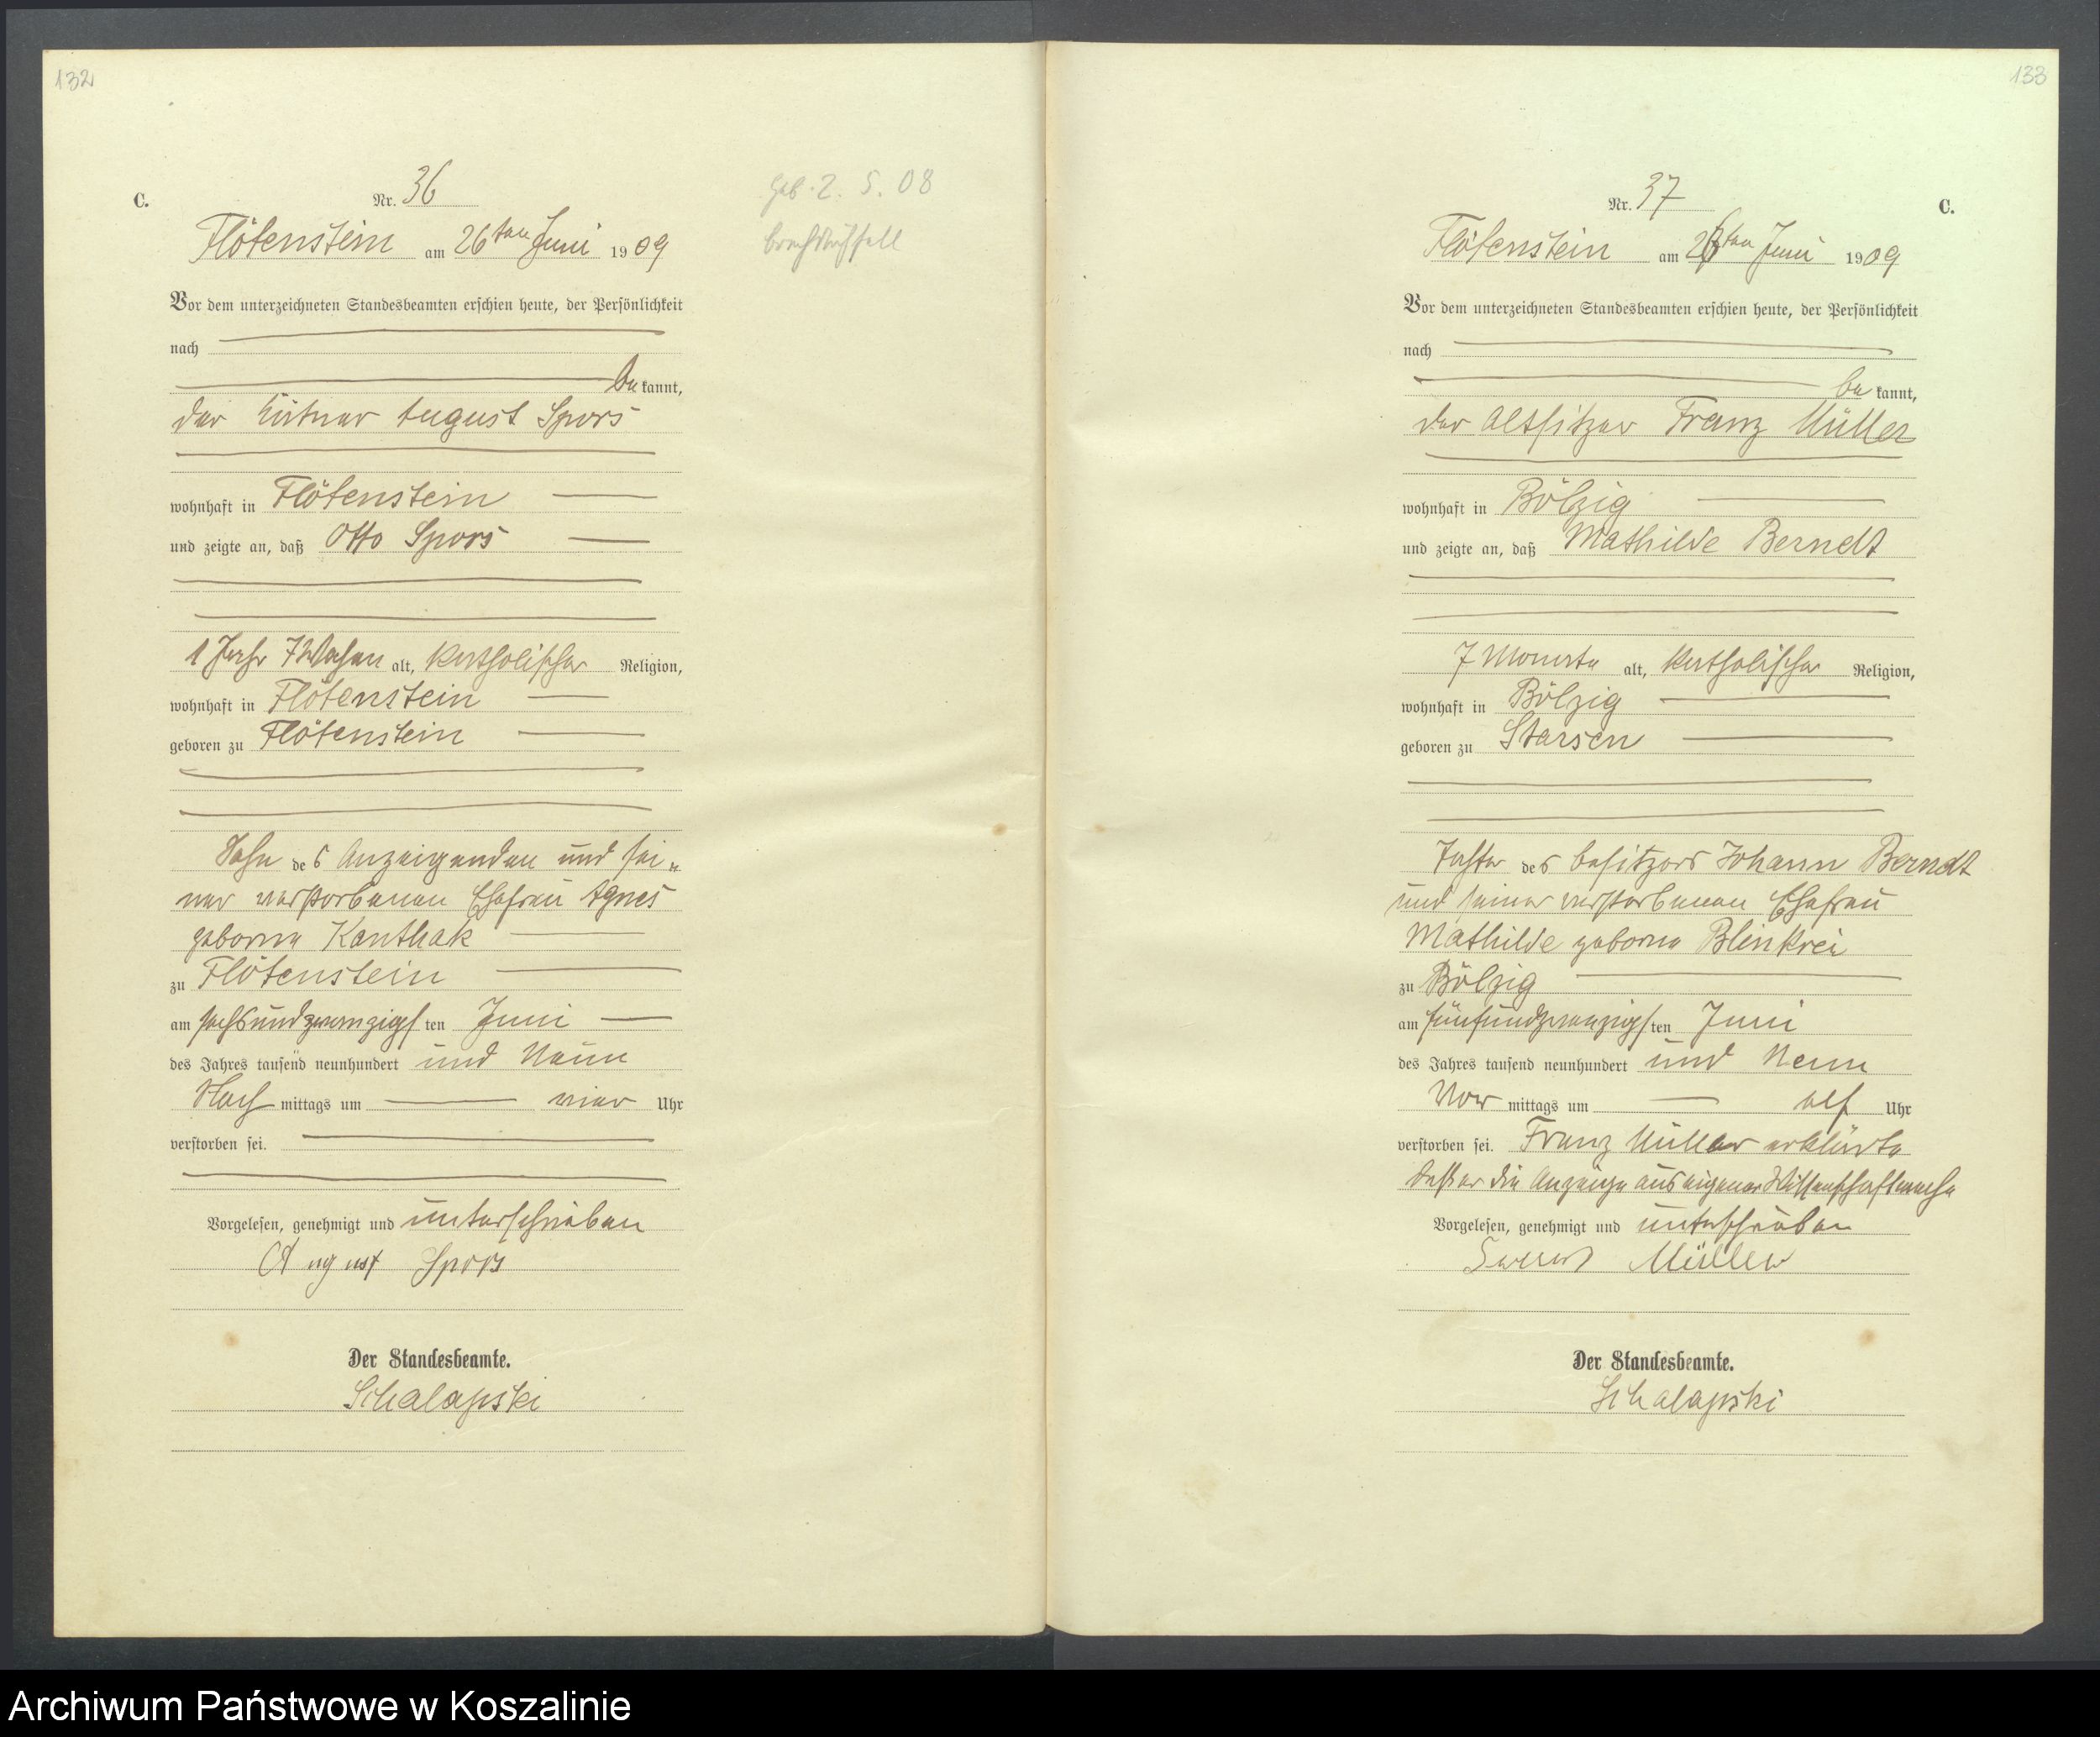 132
C.
Nr. 36
geb. 2. 5. 08
Brechdurchfall
Flötenstein am 26ten Juni 1909
Vor dem unterzeichneten Standesbeamten erschien heute, der Persönlichkeit
nach
bekannt,
der August Spors
wohnhaft in Flötenstein
und zeigte an, daß Otto Spors
1 Jahr 7 Wochen alt, katholischer Religion,
wohnhaft in Flötenstein
geboren zu Flötenstein
Sohn des Anzeigenden und sei-
ner verstorbenen Ehefrau Agnes
geborne Kanthak
zu Flötenstein
am sechsundzwanzigsten Juni
des Jahres tausend neunhundert und Neun
Nachmittags um vier Uhr
verstorben sei.
Vorgelesen, genehmigt und unterschrieben
August Spors
Der Standesbeamte.
Schalapski
133
C.
Nr. 37
Flötenstein am 26ten Juni 1909
Vor dem unterzeichneten Standesbeamten erschien heute, der Persönlichkeit
nach
bekannt,
der Altsitzer Franz Müller
wohnhaft in Bölzig
und zeigte an, daß Mathilde Berndt
7 Monate alt, katholischer Religion,
wohnhaft in Bölzig
geboren zu Starsen
Tochter des Besitzers Johann Berndt
und seiner verstorbenen Ehefrau
Mathilde geborne Blinkrei
zu Bölzig
am fünfundzwanzigsten Juni
des Jahres tausend neunhundert und Neun
Vormittags um elf Uhr
verstorben sei. Franz Müller erklärte
daß er die Anzeige aus eigener Wissenschaft mache
Vorgelesen, genehmigt und unterschrieben
Franz Müller
Der Standesbeamte.
Schalapski
Archiwum Państwowe w Koszalinie